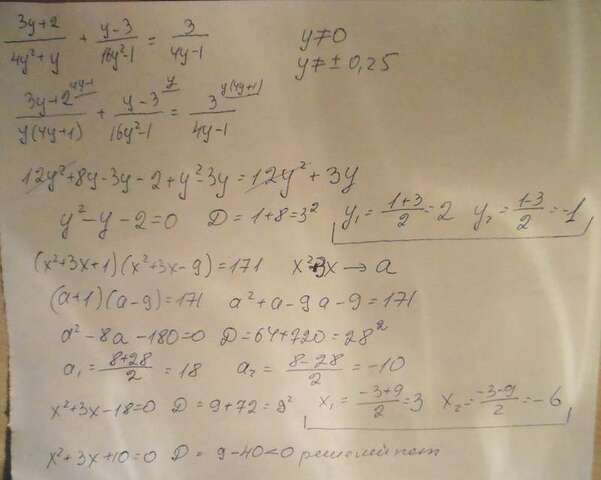 (3y+2)/(4y²+y) + (y-3)/(16y²-1) = 3/(4y-1)   y≠0
y≠±0,25
(3y+2)/(y(4y+1)) ^(4y-1) + (y-3)/(16y²-1) ^y = 3/(4y-1) ^(y(4y+1))
12y²+8y-3y-2+y²-3y=12y²+3y
y²-y-2=0   D=1+8=3²   y₁=(1+3)/2=2   y₂=(1-3)/2=-1
(x²+3x+1)(x²+3x-9)=171   x²+3x → a
(a+1)(a-9)=171   a²+a-9a-9=171
a²-8a-180=0   D=64+720=28²
a₁=(8+28)/2=18   a₂=(8-28)/2=-10
x²+3x-18=0   D=9+72=9²   x₁=(-3+9)/2=3   x₂=(-3-9)/2=-6
x²+3x+10=0   D=9-40<0 решений нет